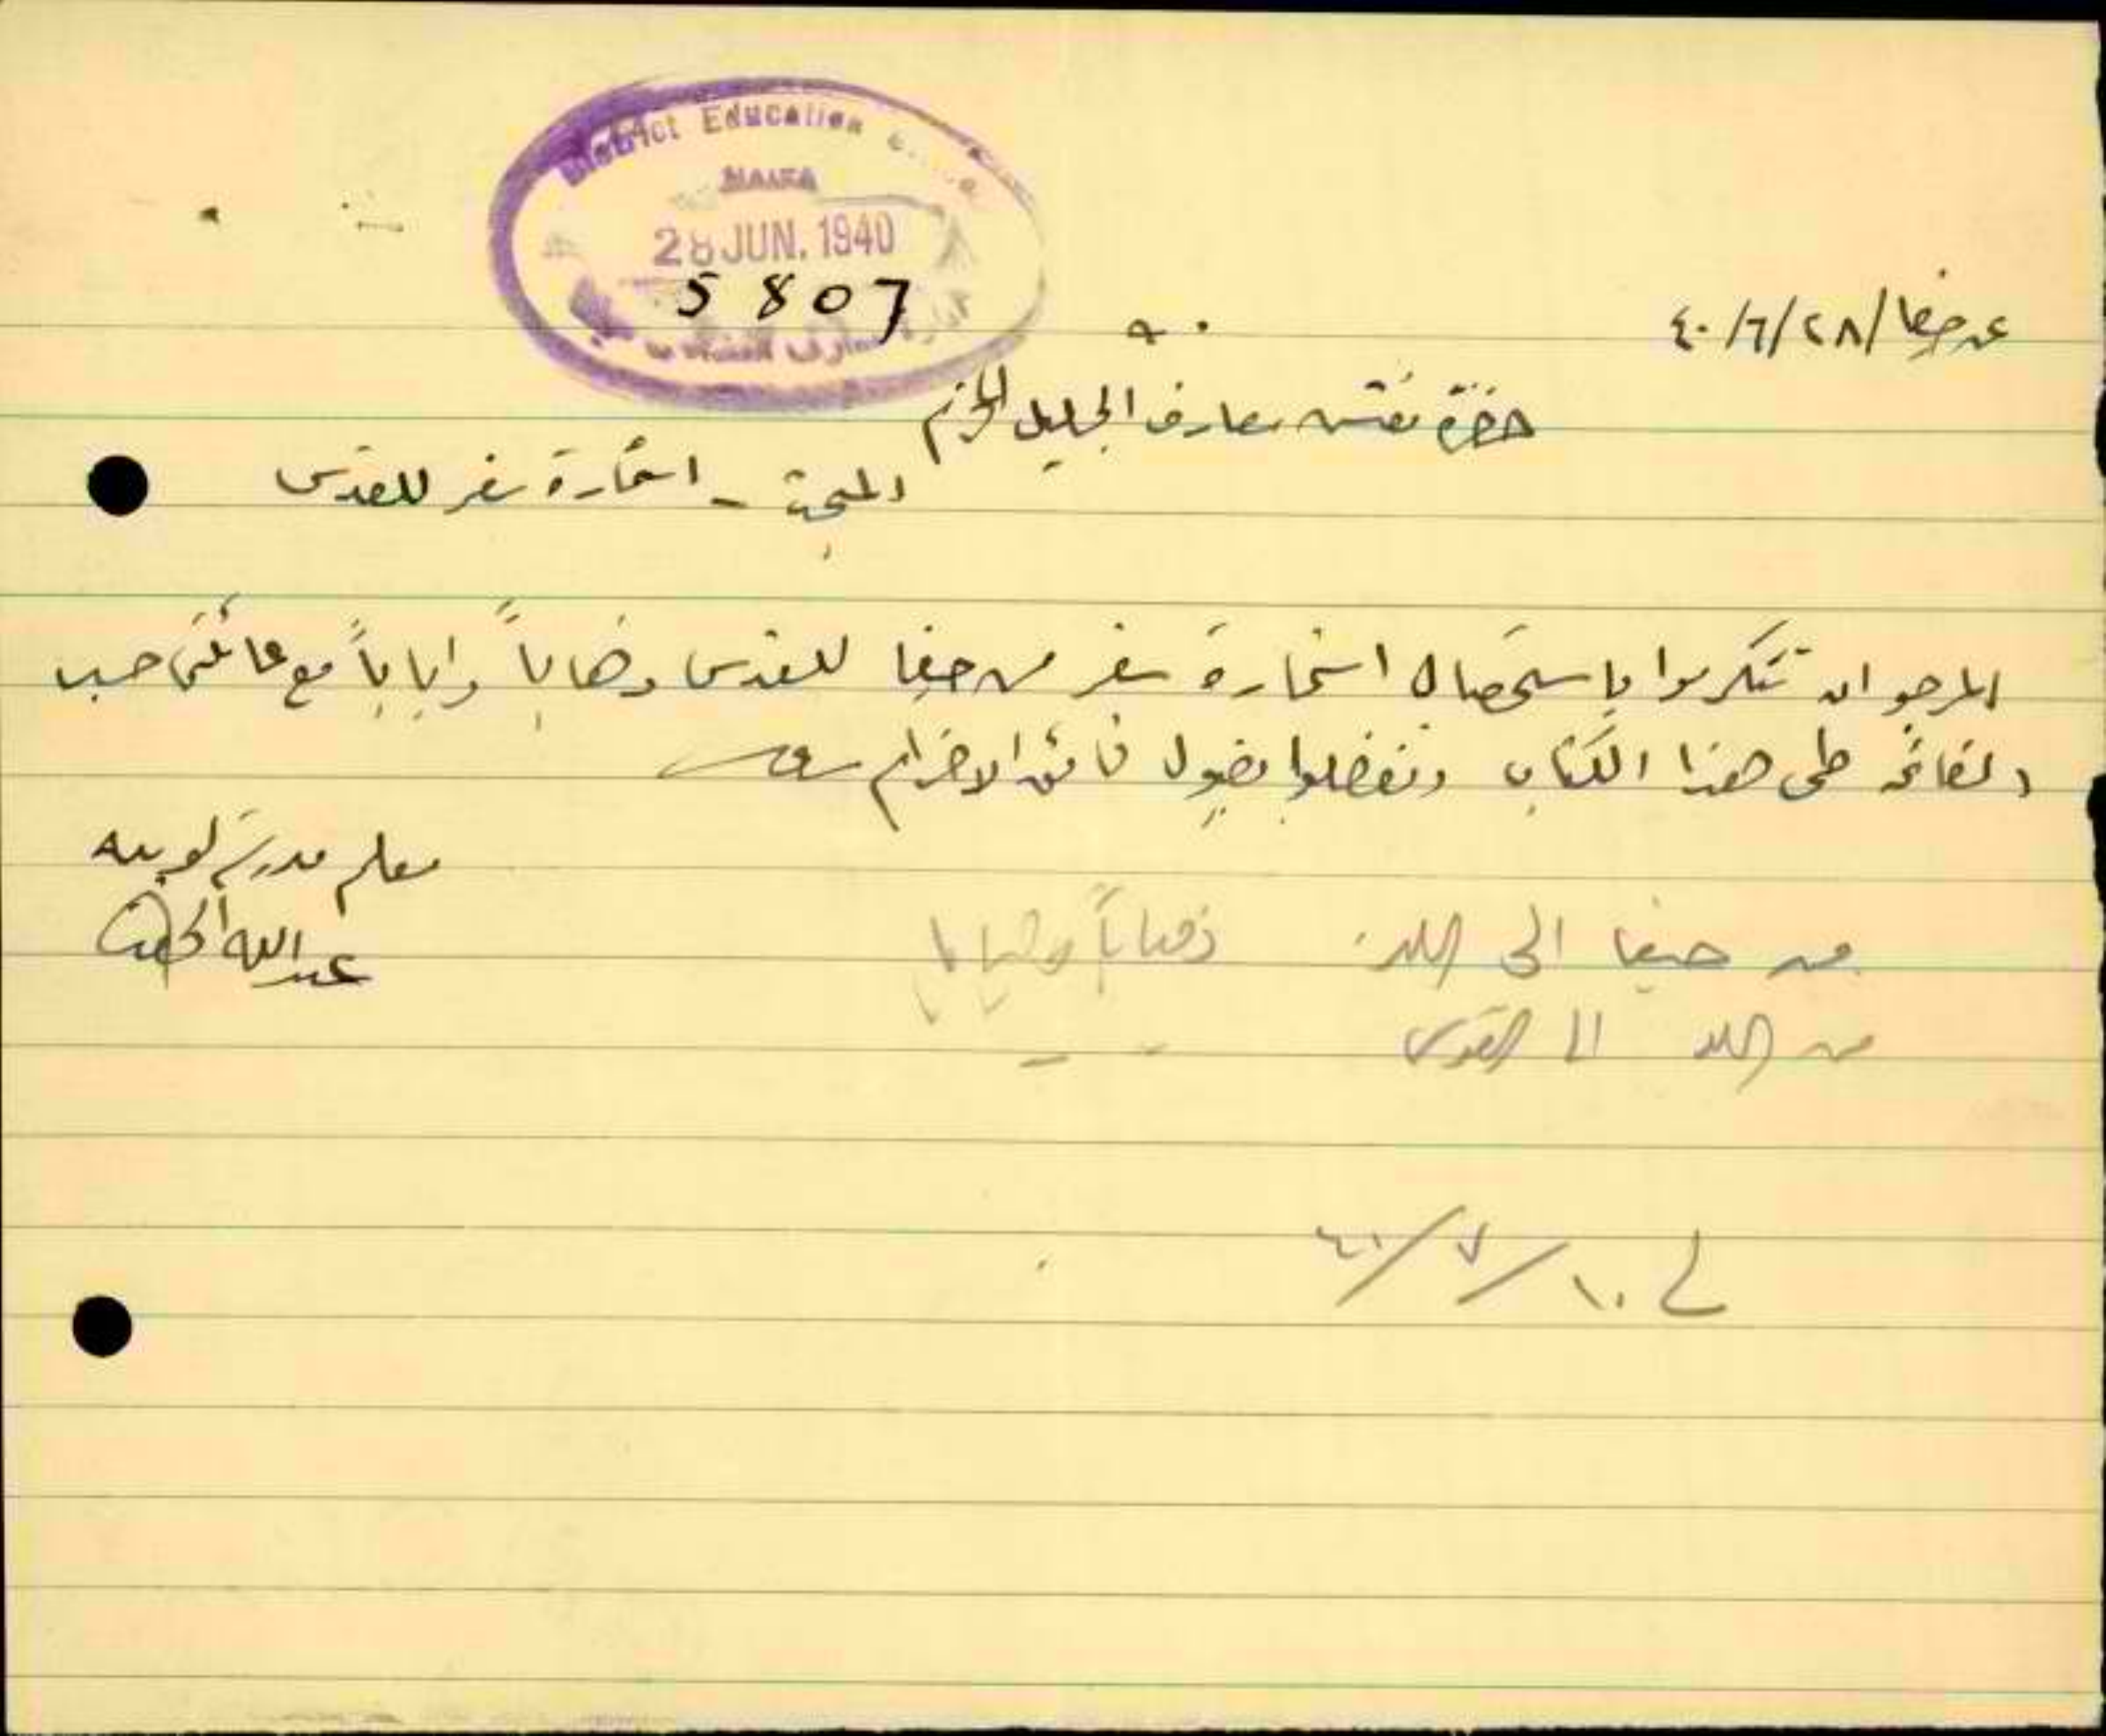 District Education
HAIFA
28 JUN. 1940
5807
عن حيفا / ٢٨ / ٦ / ٤٠
حضرة مفتش معارف الجليل المحترم
استمارة سفر للقدس
المرجو ان تتكرموا باستحصال استمارة سفر من حيفا للقدس وذهاباً واياباً مع عائلتي حسب
القائمة طي هذا الكتاب وتفضلوا بقبول فائق الاحترام
معلم مدرسة لوبيه
عبدالله
من حيفا الى اللد ذهاباً وايابا
من اللد الى القدس
١٠ / ٧ / ٤٠